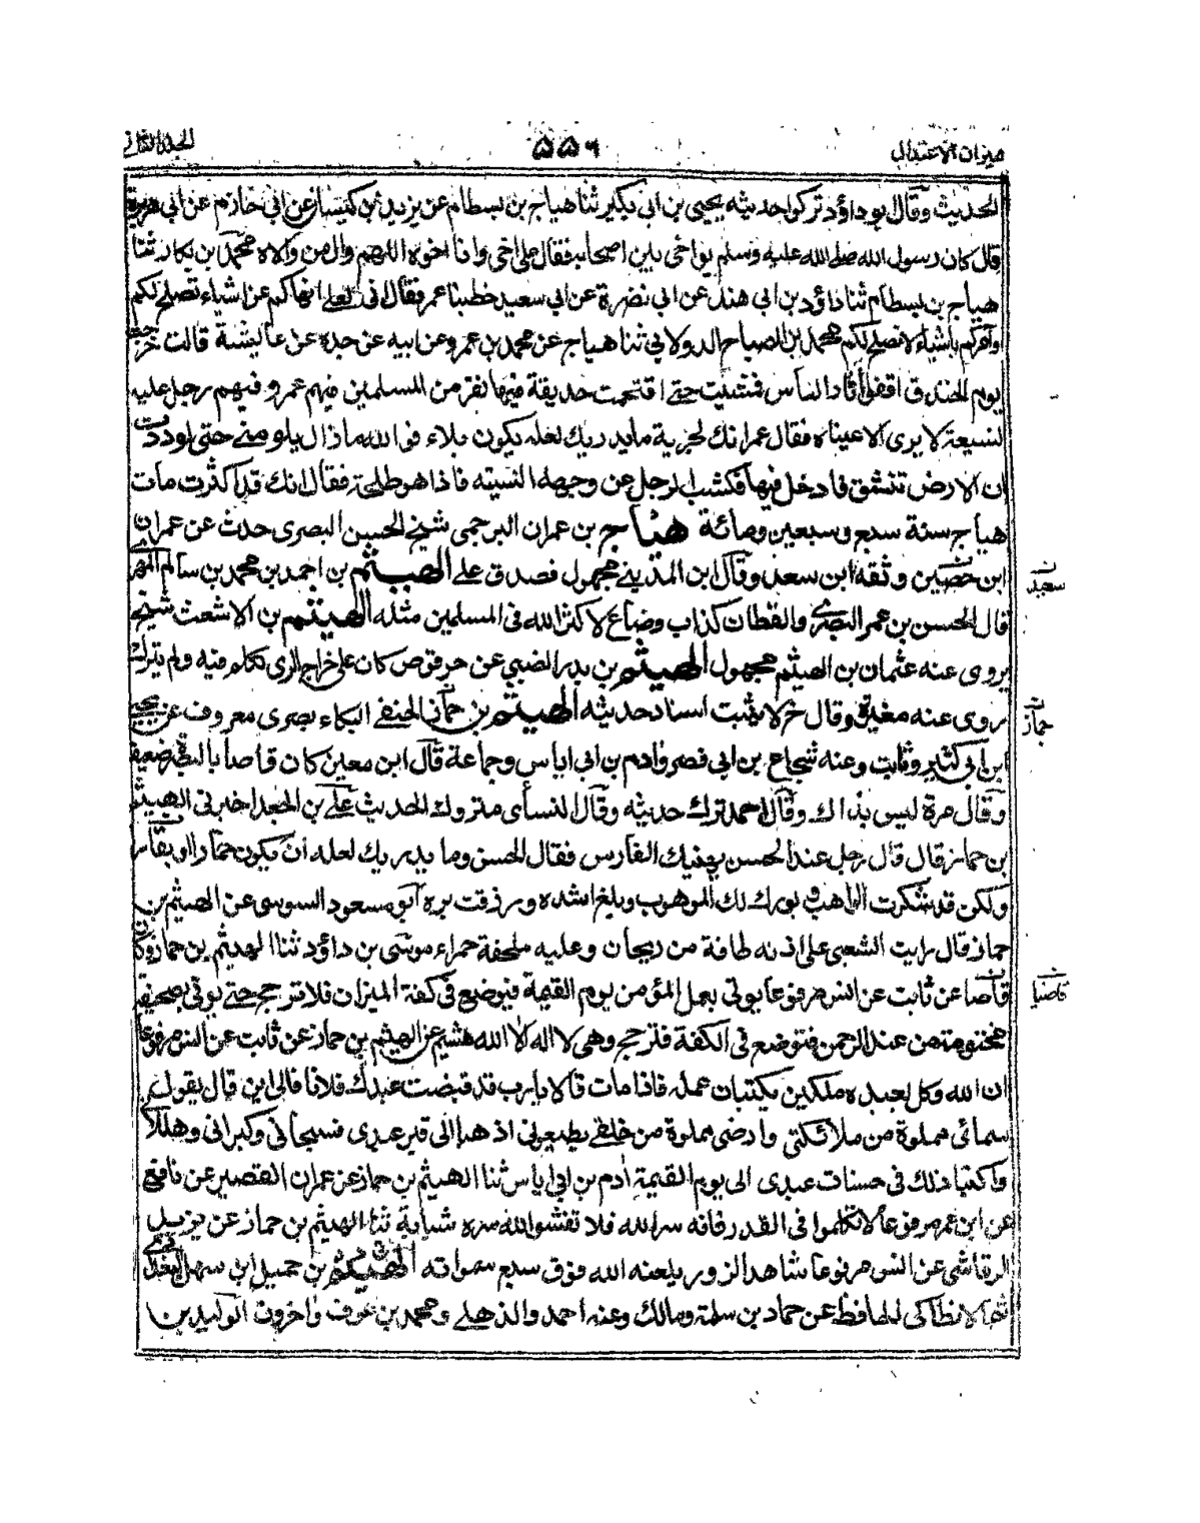 ميزان الاعتدال ٥٥٦ الجلد الثاني
الحديث وقال ابو داؤد تركوا حديثه يحيى بن ابى بكير ثنا هياج بن بسطام عن يزيد بن كيسان عن ابى حازم عن ابى هريرة
قال كان رسول الله صلى الله عليه وسلم يواخى بين اصحابه فقال على اخى وانا اخوه اللهم وال من والاه محمد بن بكار ثنا
هياج بن بسطام ثنا داؤد بن ابى هند عن ابى نضرة عن ابى سعيد خطبنا عمر فقال انى لعلى انهاكم عن اشياء تصلح لكم
وآمركم باشياء لا تصلح لكم محمد بن الصباح الدولابي ثنا هياج عن محمد بن عمرو عن ابيه عن جده عن عايشة قالت خرجت
يوم الخندق اقفو آثار الناس فمشيت حتى اقتحمت حديقة فيها نفر من المسلمين فيهم عمر و فيهم رجل عليه
تسبغة لا يرى الا عيناه فقال عمر انك لجرية ما يدريك لعله يكون بلاء فوالله ما زال يلومنى حتى لوددت
ان الارض تنشق فادخل فيها فكشف الرجل عن وجهه التسبغة فاذا هو طلحة فقال انك قد اكثرت مات
هياج سنة سبع و سبعين ومائة هياج بن عمران البرجمى شيخ الحسن البصرى حدث عن عمران
ابن حصين وثقه ابن سعد وقال ابن المدينى مجهول فصدق على الهيثم بن احمد بن محمد بن سالم المهر
قال الحسن بن عمر البصرى والقطان كذاب وضاع لا كثر الله فى المسلمين مثله الهيثم بن الاشعث شيخ
يروى عنه عثمان بن الهيثم مجهول الهيثم بن بدر الضبي عن حرقوص كان على خراج الرى تكلم فيه ولم يترك
روى عنه مغيرة وقال خ لا يثبت اسناد حديثه الهيثم بن جماز الحنفى البكاء بصرى معروف عن يحيى
ابن ابى كثير وثابت وعنه شجاع بن ابى نصر وادم بن ابى اياس وجماعة قال ابن معين كان قاصا بالبصرة ضعيف
وقال مرة ليس بذاك وقال احمد ترك حديثه وقال النسأى متروك الحديث على بن الجعد اخبرنى الهيثم
بن جماز قال قال رجل عند الحسن يهنيك الفارس فقال الحسن وما يدريك لعله ان يكون حمارا او بقارا
ولكن قد شكرت الواهب و بورك لك الموهوب وبلغ اشده و رزقت بره ابو مسعود السوسى عن الهيثم بن
جماز قال رايت الشعبى على اذنه طاقة من ريحان وعليه ملحفة حمراء موسى بن داؤد ثنا الهيثم بن جماز وكان
قاصا عن ثابت عن انس مرفوعا يوتى بعمل المؤمن يوم القيمة فيوضع فى كفة الميزان فلا ترجح حتى يوتى بصحيفة
مختومة من عند الرحمن فتوضع فى الكفة فترجح وهى لا اله الا الله هشيم عن الهيثم بن جماز عن ثابت عن انس مرفوعا
ان الله وكل بعبده ملكين يكتبان عمله فاذا مات قالا يا رب قد قبضت عبدك فلانا فالى اين قال يقول
سمائى مملوة من ملائكتى وارضى مملوة من خلقى يطيعونى اذهبا الى قبر عبدى فسبحانى وكبرانى وهللا
واكتبا ذلك فى حسنات عبدى الى يوم القيمة ادم بن ابى اياس ثنا الهيثم بن جماز عن عمران القصير عن نافع
عن ابن عمر مرفوعا لا تكلموا فى القدر فانه سر الله فلا تفشوا لله سره شبابة ثنا الهيثم بن جماز عن يزيد
الرقاشى عن انس مرفوعا شاهد الزور يلعنه الله فوق سبع سمواته الهيثم بن جميل ابو سهل البغدادى
ثم الانطاكى الحافظ عن حماد بن سلمة ومالك وعنه احمد والذهلى ومحمد بن عوف واخرون الوليد بن
سعيد
جماز
قاضيا